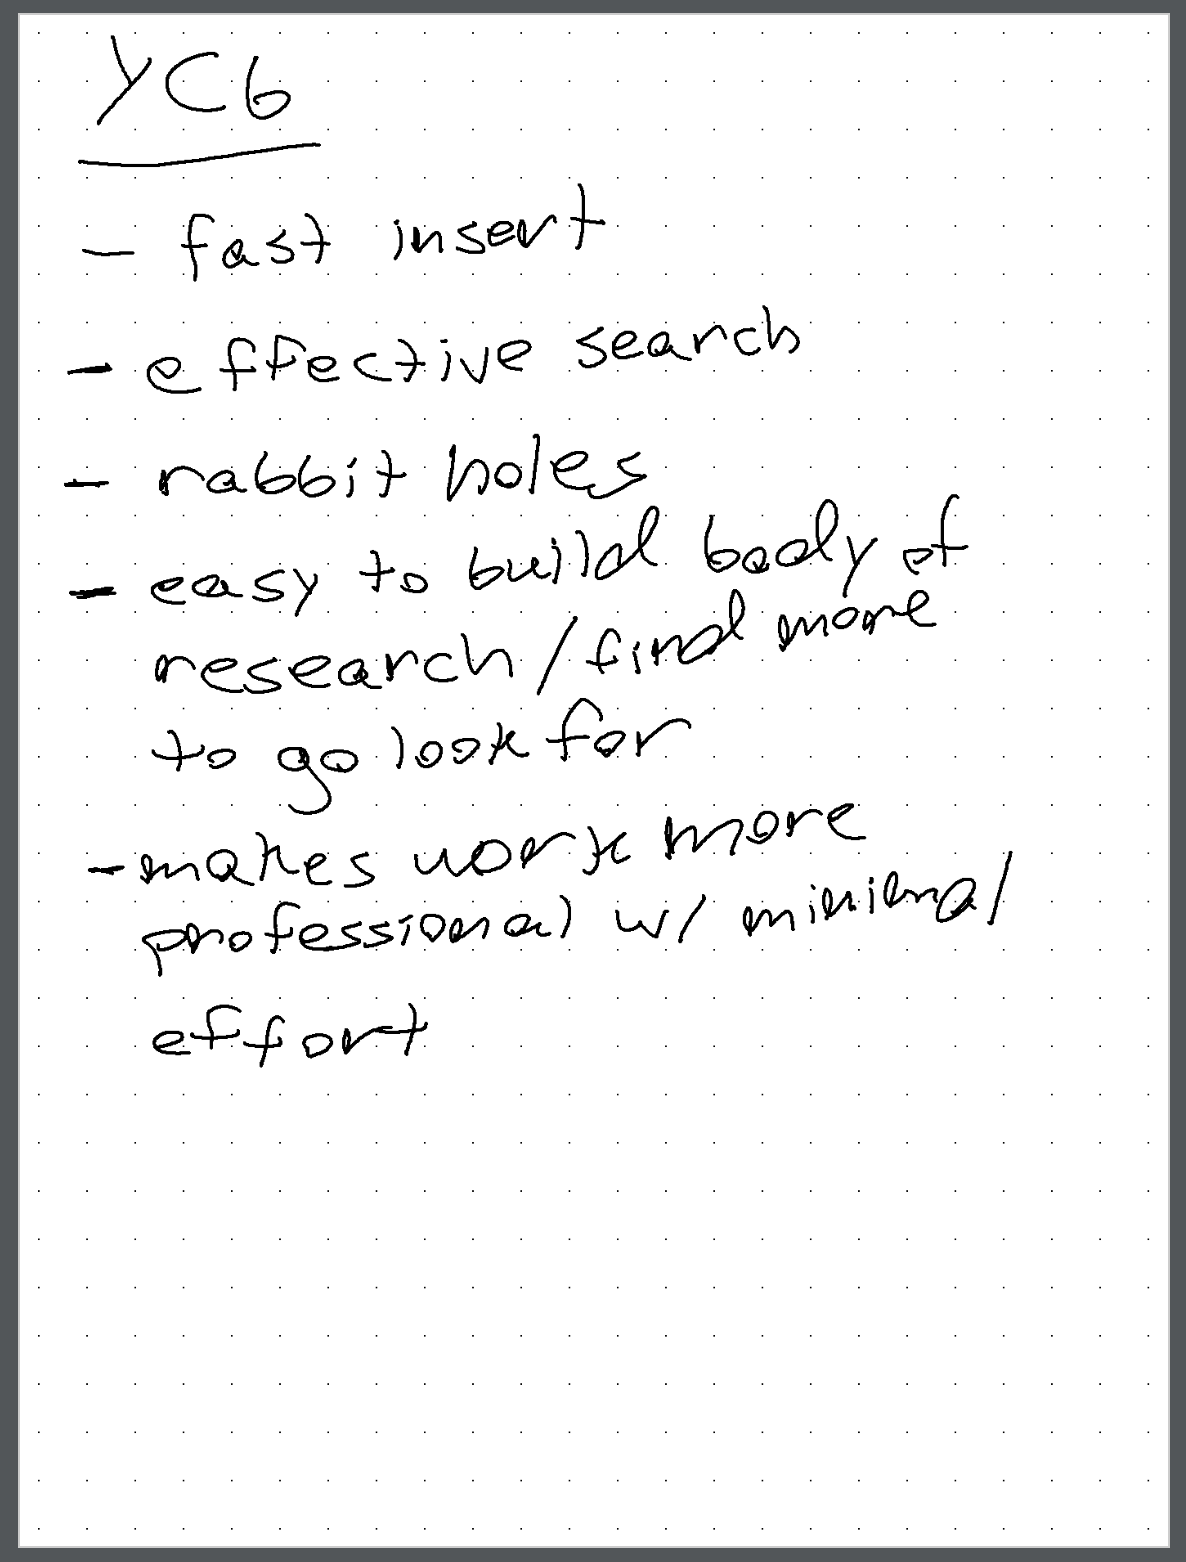 YC6
- fast insert
- effective search
- rabbit holes
- easy to build body of
research/find more
to go look for
- makes work more
professional w/ minimal
effort